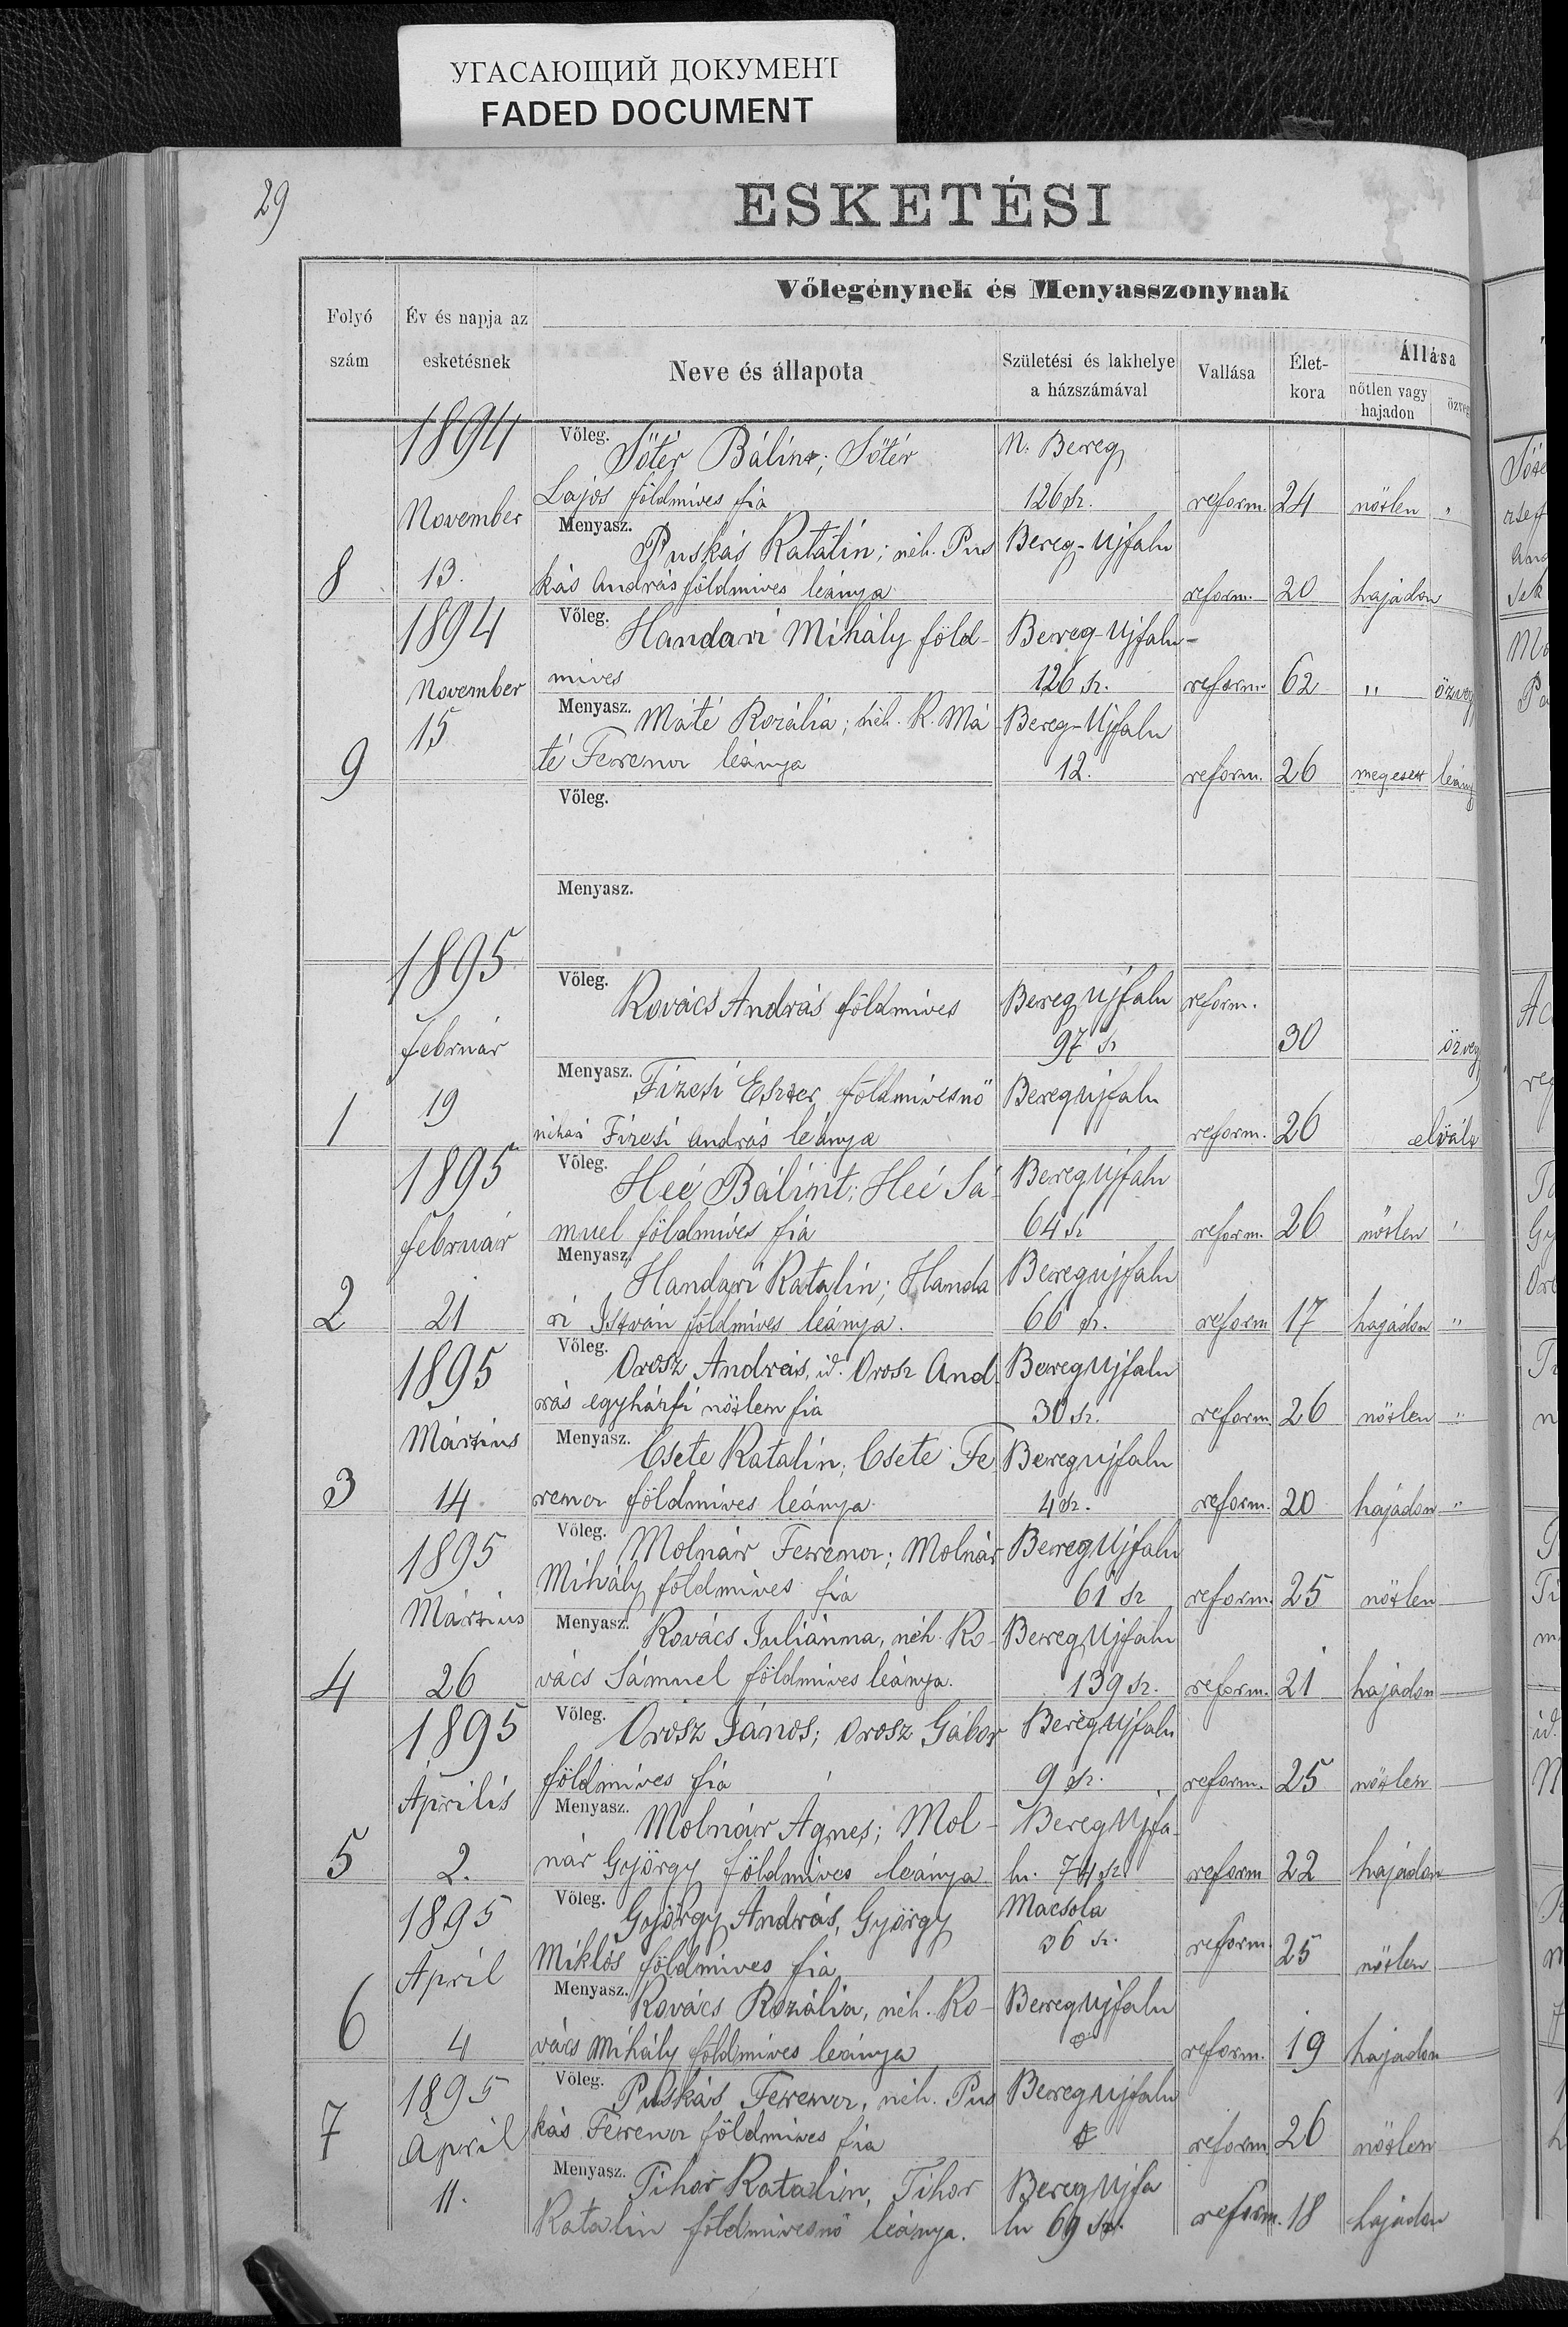 УГАСАЮЩИЙ ДОКУМЕНТ
FADED DOCUMENT
29
ESKETÉSI
Folyó szám
Év és napja az esketésnek
Vőlegénynek és Menyasszonynak
Neve és állapota
Születési és lakhelye a házszámával
Vallása
Élet-kora
Állása
nőtlen vagy hajadon
özveg
1894
Vőleg. Sőtér Bálint; Sőtér N. Bereg
Lajos földmives fia 126 sz. reform. 24 nőtlen "
November
Menyasz. Puskás Katalin; néh. Pus Bereg-Ujfalu
8 13. kás András földmives leánya reform. 20 hajadon
1894
Vőleg. Handari Mihály föld- Bereg-Ujfalu-
November mives 126 sz. reform. 62 " özveg
Menyasz. Máté Rozália; néh. K. Má- Bereg-Ujfalu
9 15 té Ferencz leánya 12. reform. 26 megesett leány
Vőleg.
Menyasz.
1895
Vőleg. Kovács András földmives Bereg Ujfalu reform.
Február 97 sz 30 özveg
Menyasz. Fizesi Eszter földmivesnő BeregUjfalu
1 19 néhai Fizesi András leánya reform. 26 elvált
1895
Vőleg. Heé Bálint; Heé Sá- BeregUjfalu
Február muel földmives fia 64 sz reform. 26 nőtlen "
Menyasz. Handari Katalin; Handa BeregUjfalu
2 21 ri István földmives leánya. 66 sz. reform 17 hajadon "
1895
Vőleg. Orosz András, id. Orosz And BeregUjfalu
rás egyházfi nőtlen fia 30 sz. reform. 26 nőtlen "
Márczius
Menyasz. Csete Katalin; Csete Fe BeregUjfalu
3 14 rencz földmives leánya 4 sz. reform. 20 hajadon "
1895
Vőleg. Molnár Ferencz; Molnár BeregUjfalu
Mihály földmives fia 61 sz reform. 25 nőtlen
Márczius
Menyasz. Kovács Juliánna, néh. Ko- BeregUjfalu
4 26 vács Sámuel földmives leánya. 139 sz. reform. 21 hajadon
1895
Vőleg. Orosz János; Orosz Gábor BeregUjfalu
Április földmives fia 9 sz. reform. 25 nőtlen
Menyasz. Molnár Ágnes; Mol- BeregUjfa-
5 2. nár György földmives leánya lu. 74 sz. reform 22 hajadon
1895
Vőleg. György András, György Macsola
Miklós földmives fia 36 sz. reform. 25 nőtlen
April
Menyasz. Kovács Rozália, néh. Ko- BeregUjfalu
6 4 vács Mihály földmives leánya reform. 19 hajadon
1895
Vőleg. Puskás Ferencz, néh. Pus BeregUjfalu
7 April kás Ferencz földmives fia reform. 26 nőtlen
Menyasz. Tihor Katalin, Tihor BeregUjfa
11. Katalin földmivesnő leánya. lu 69 sz. reform. 18 hajadon